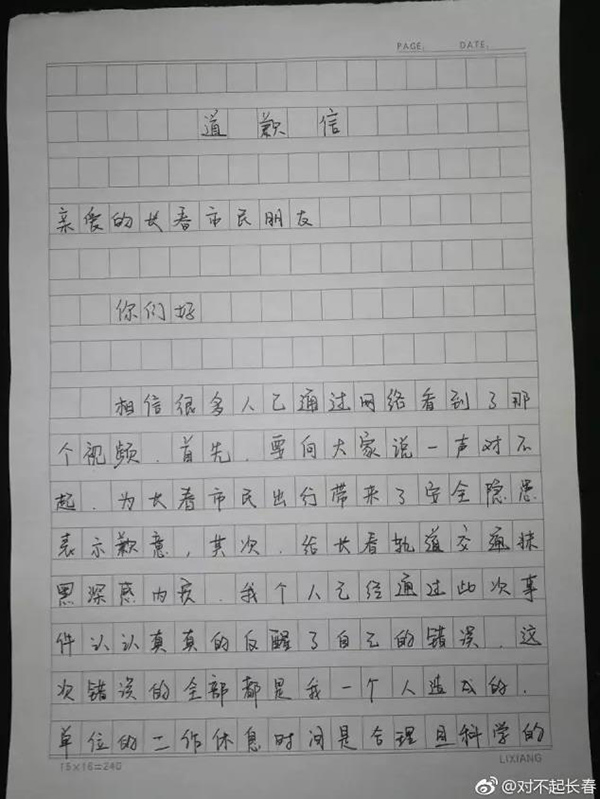 PAGE: DATE:
道歉信
亲爱的长春市民朋友
你们好
相信很多人已通过网络看到了那
个视频.首先.要向大家说一声对不
起.为长春市民出行带来了安全隐患
表示歉意,其次.给长春轨道交通抹
黑深感内疚.我个人已经通过此次事
件认认真真的反醒了自己的错误.这
次错误的全部都是我一个人造成的.
单位的工作休息时间是合理且科学的
15×16=240 LIXIANG
@对不起长春